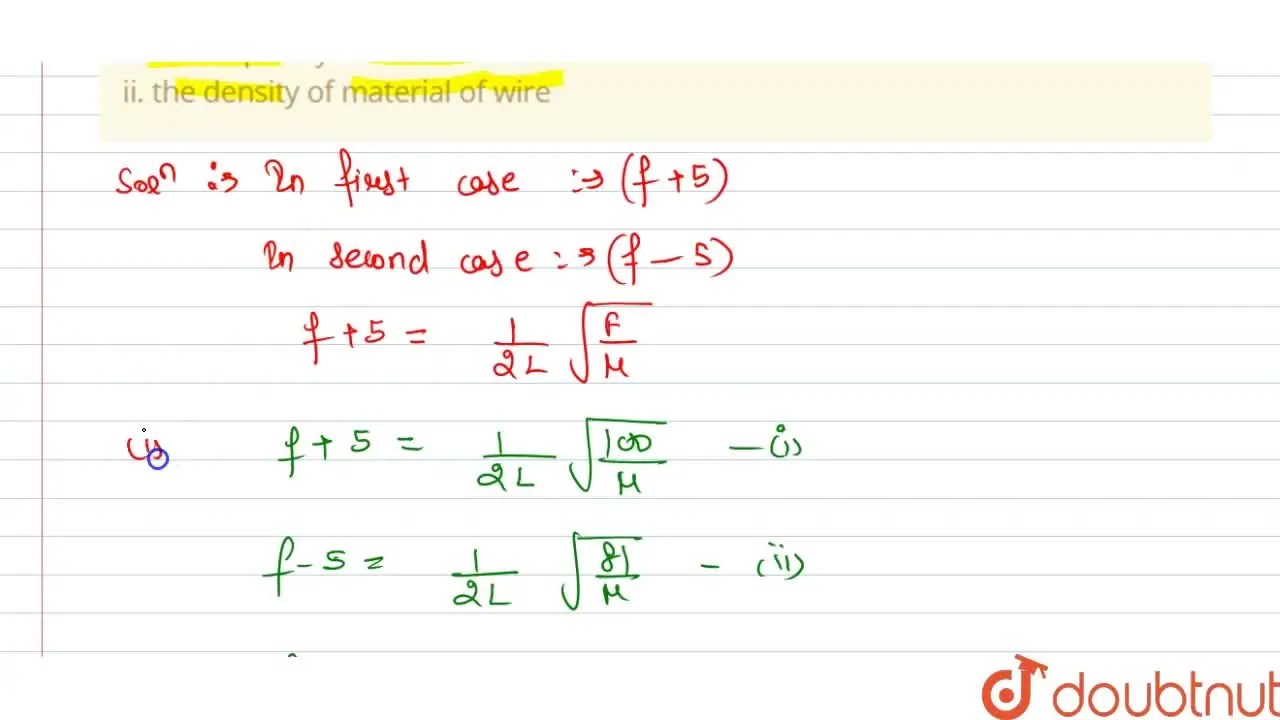 ii. the density of material of wire
Soln :→ In first case :→ (f + 5)
In second case :→ (f − 5)
f + 5 = 1/2L √F/μ
(i) f + 5 = 1/2L √100/μ − (i)
f − 5 = 1/2L √81/μ − (ii)
doubtnut